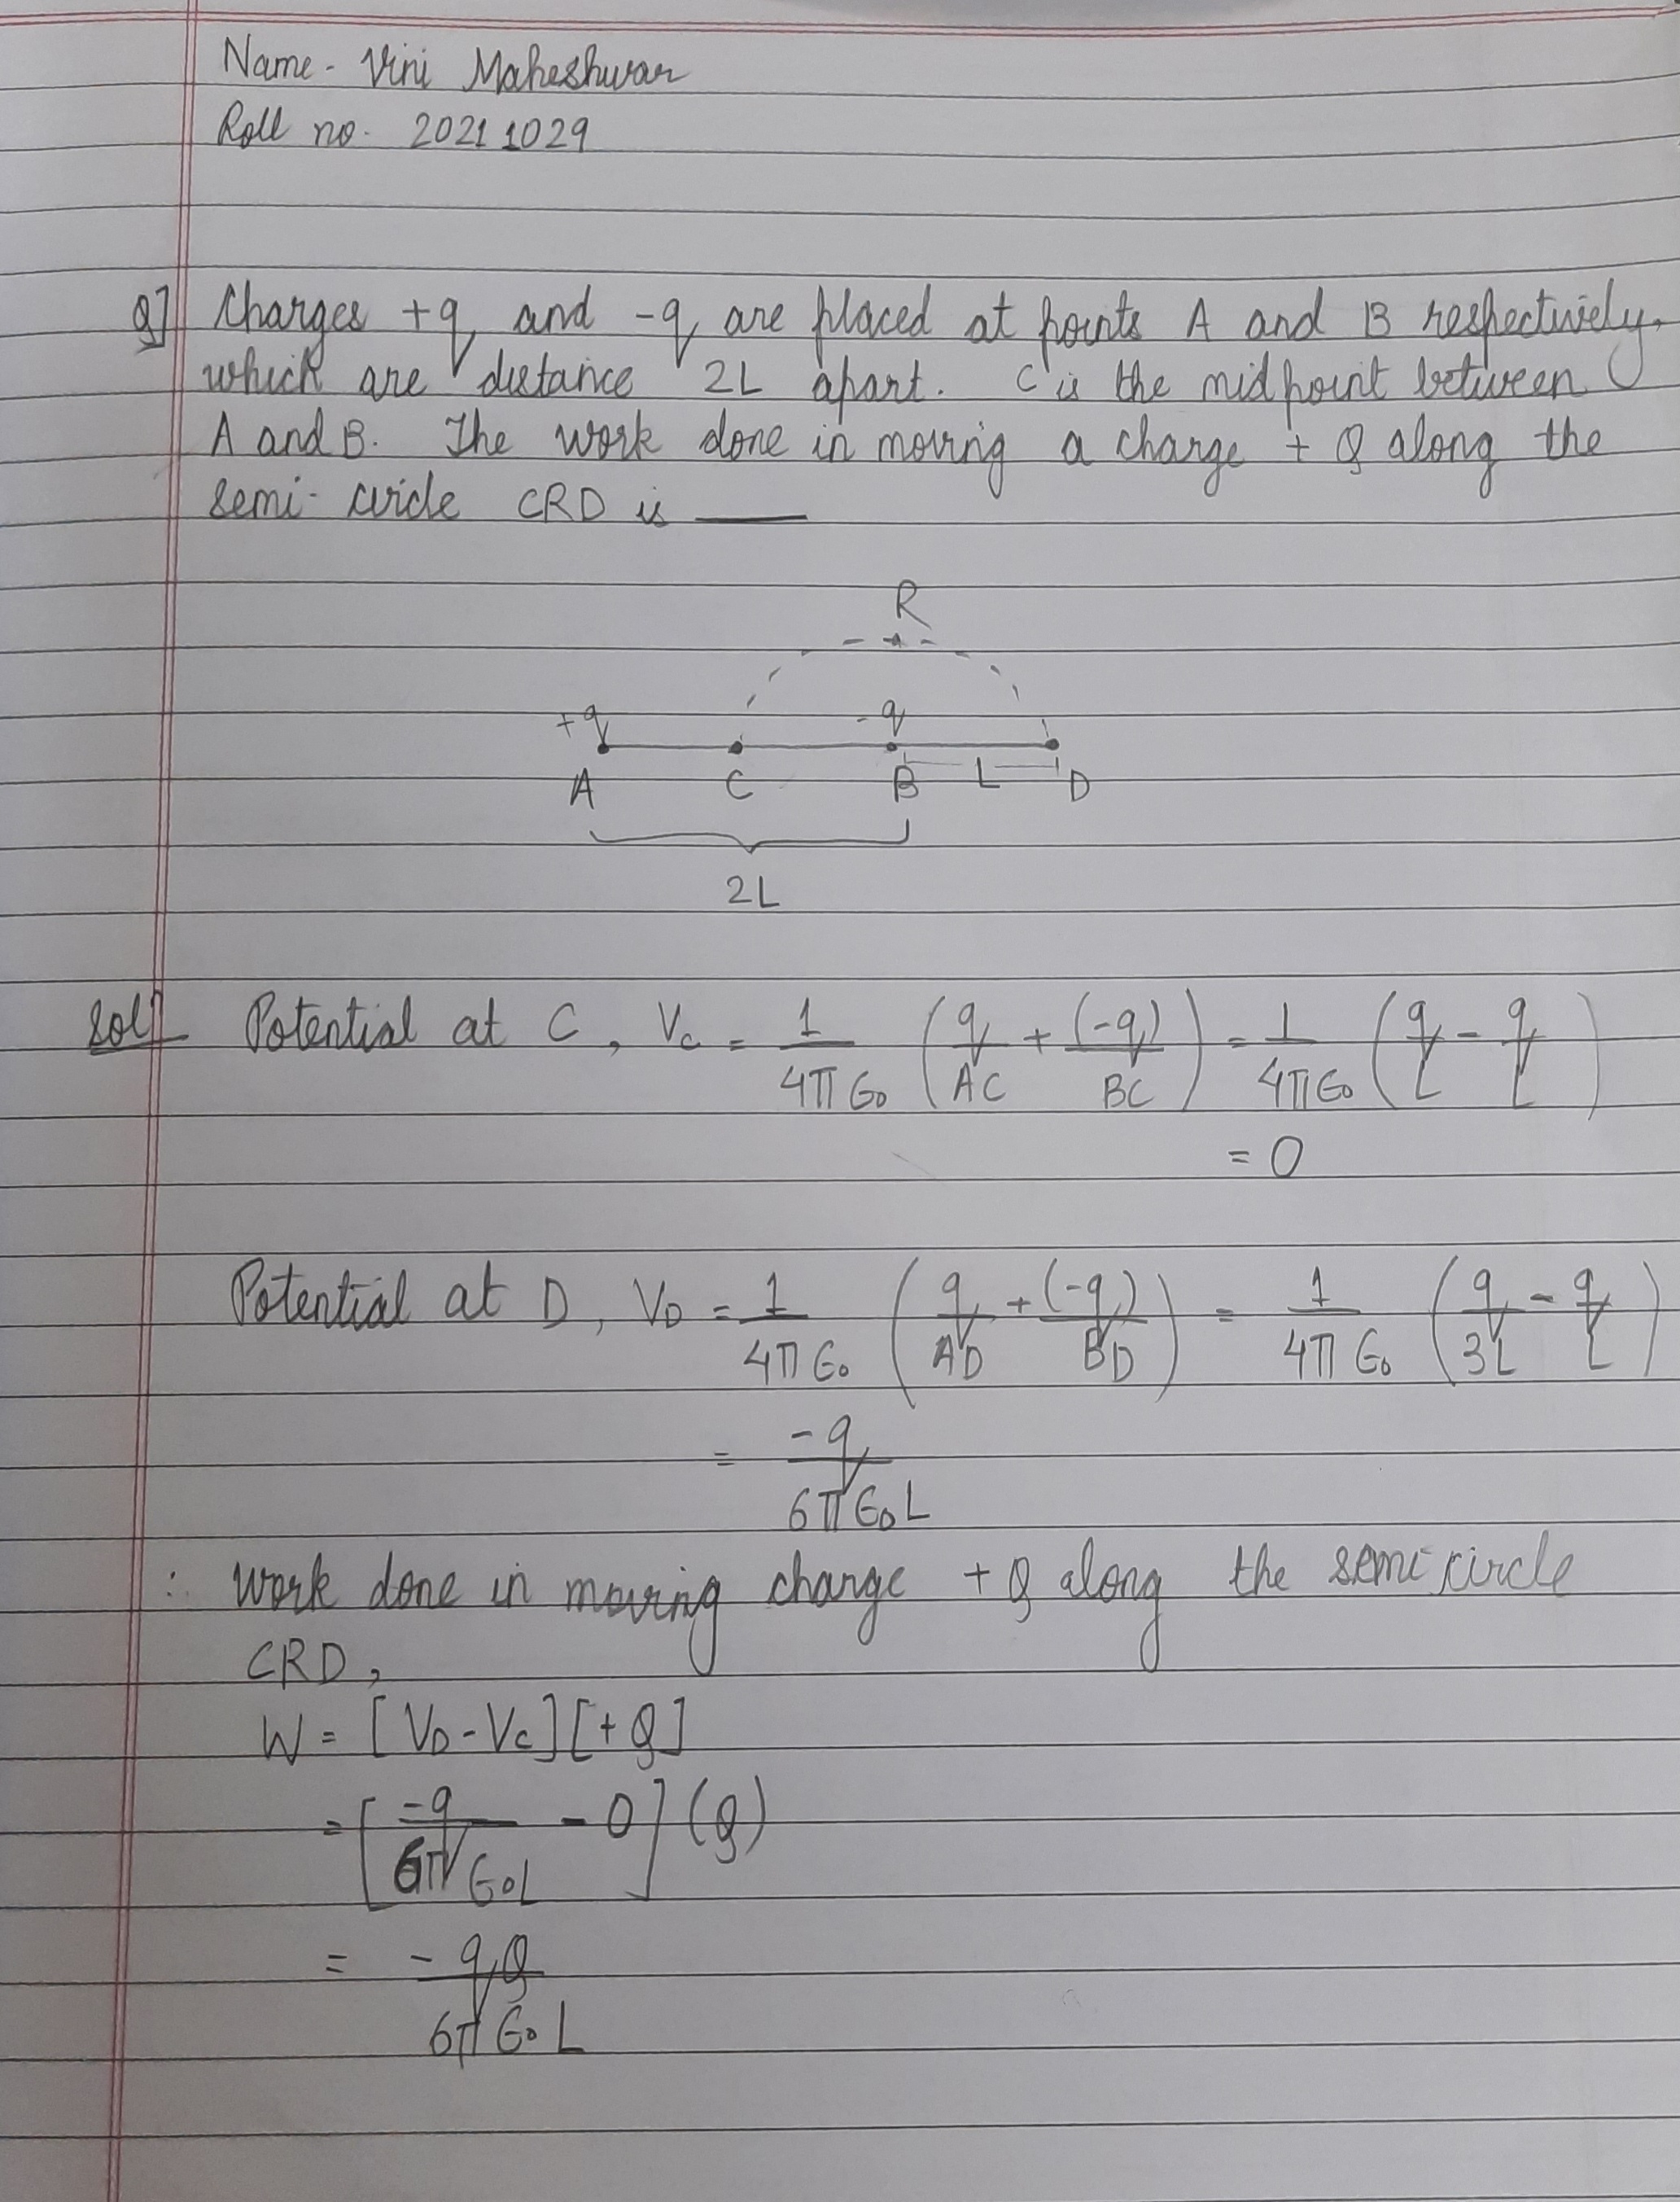 Name - Vini Maheshwari
Roll no. 20211029
Q] Charges +q and -q are placed at points A and B respectively,
which are distance 2L apart. C is the midpoint between
A and B. The work done in moving a charge + Q along the
semi-circle CRD is ___
R
+q -q
A C B L D
2L
Sol^n Potential at C, Vc = 1/4πϵ₀ (q/AC + (-q)/BC) = 1/4πϵ₀ (q/L - q/L)
= 0
Potential at D, V_D = 1/4πϵ₀ (q/AD + (-q)/BD) = 1/4πϵ₀ (q/3L - q/L)
= -q/6πϵ₀L
∴ Work done in moving charge +Q along the semi circle
CRD,
W = [V_D - Vc][+Q]
= [-q/6πϵ₀L - 0](Q)
= -qQ/6πϵ₀L